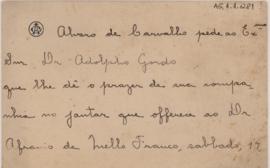 AG.1.1.281
Alvaro de Carvalho pede ao Ex.mo
Snr Dr Adolpho Gordo
que lhe dê o prazer de sua compa-
nhia no jantar que offerece ao Dr
Afranio de Mello Franco, sabbado, 17